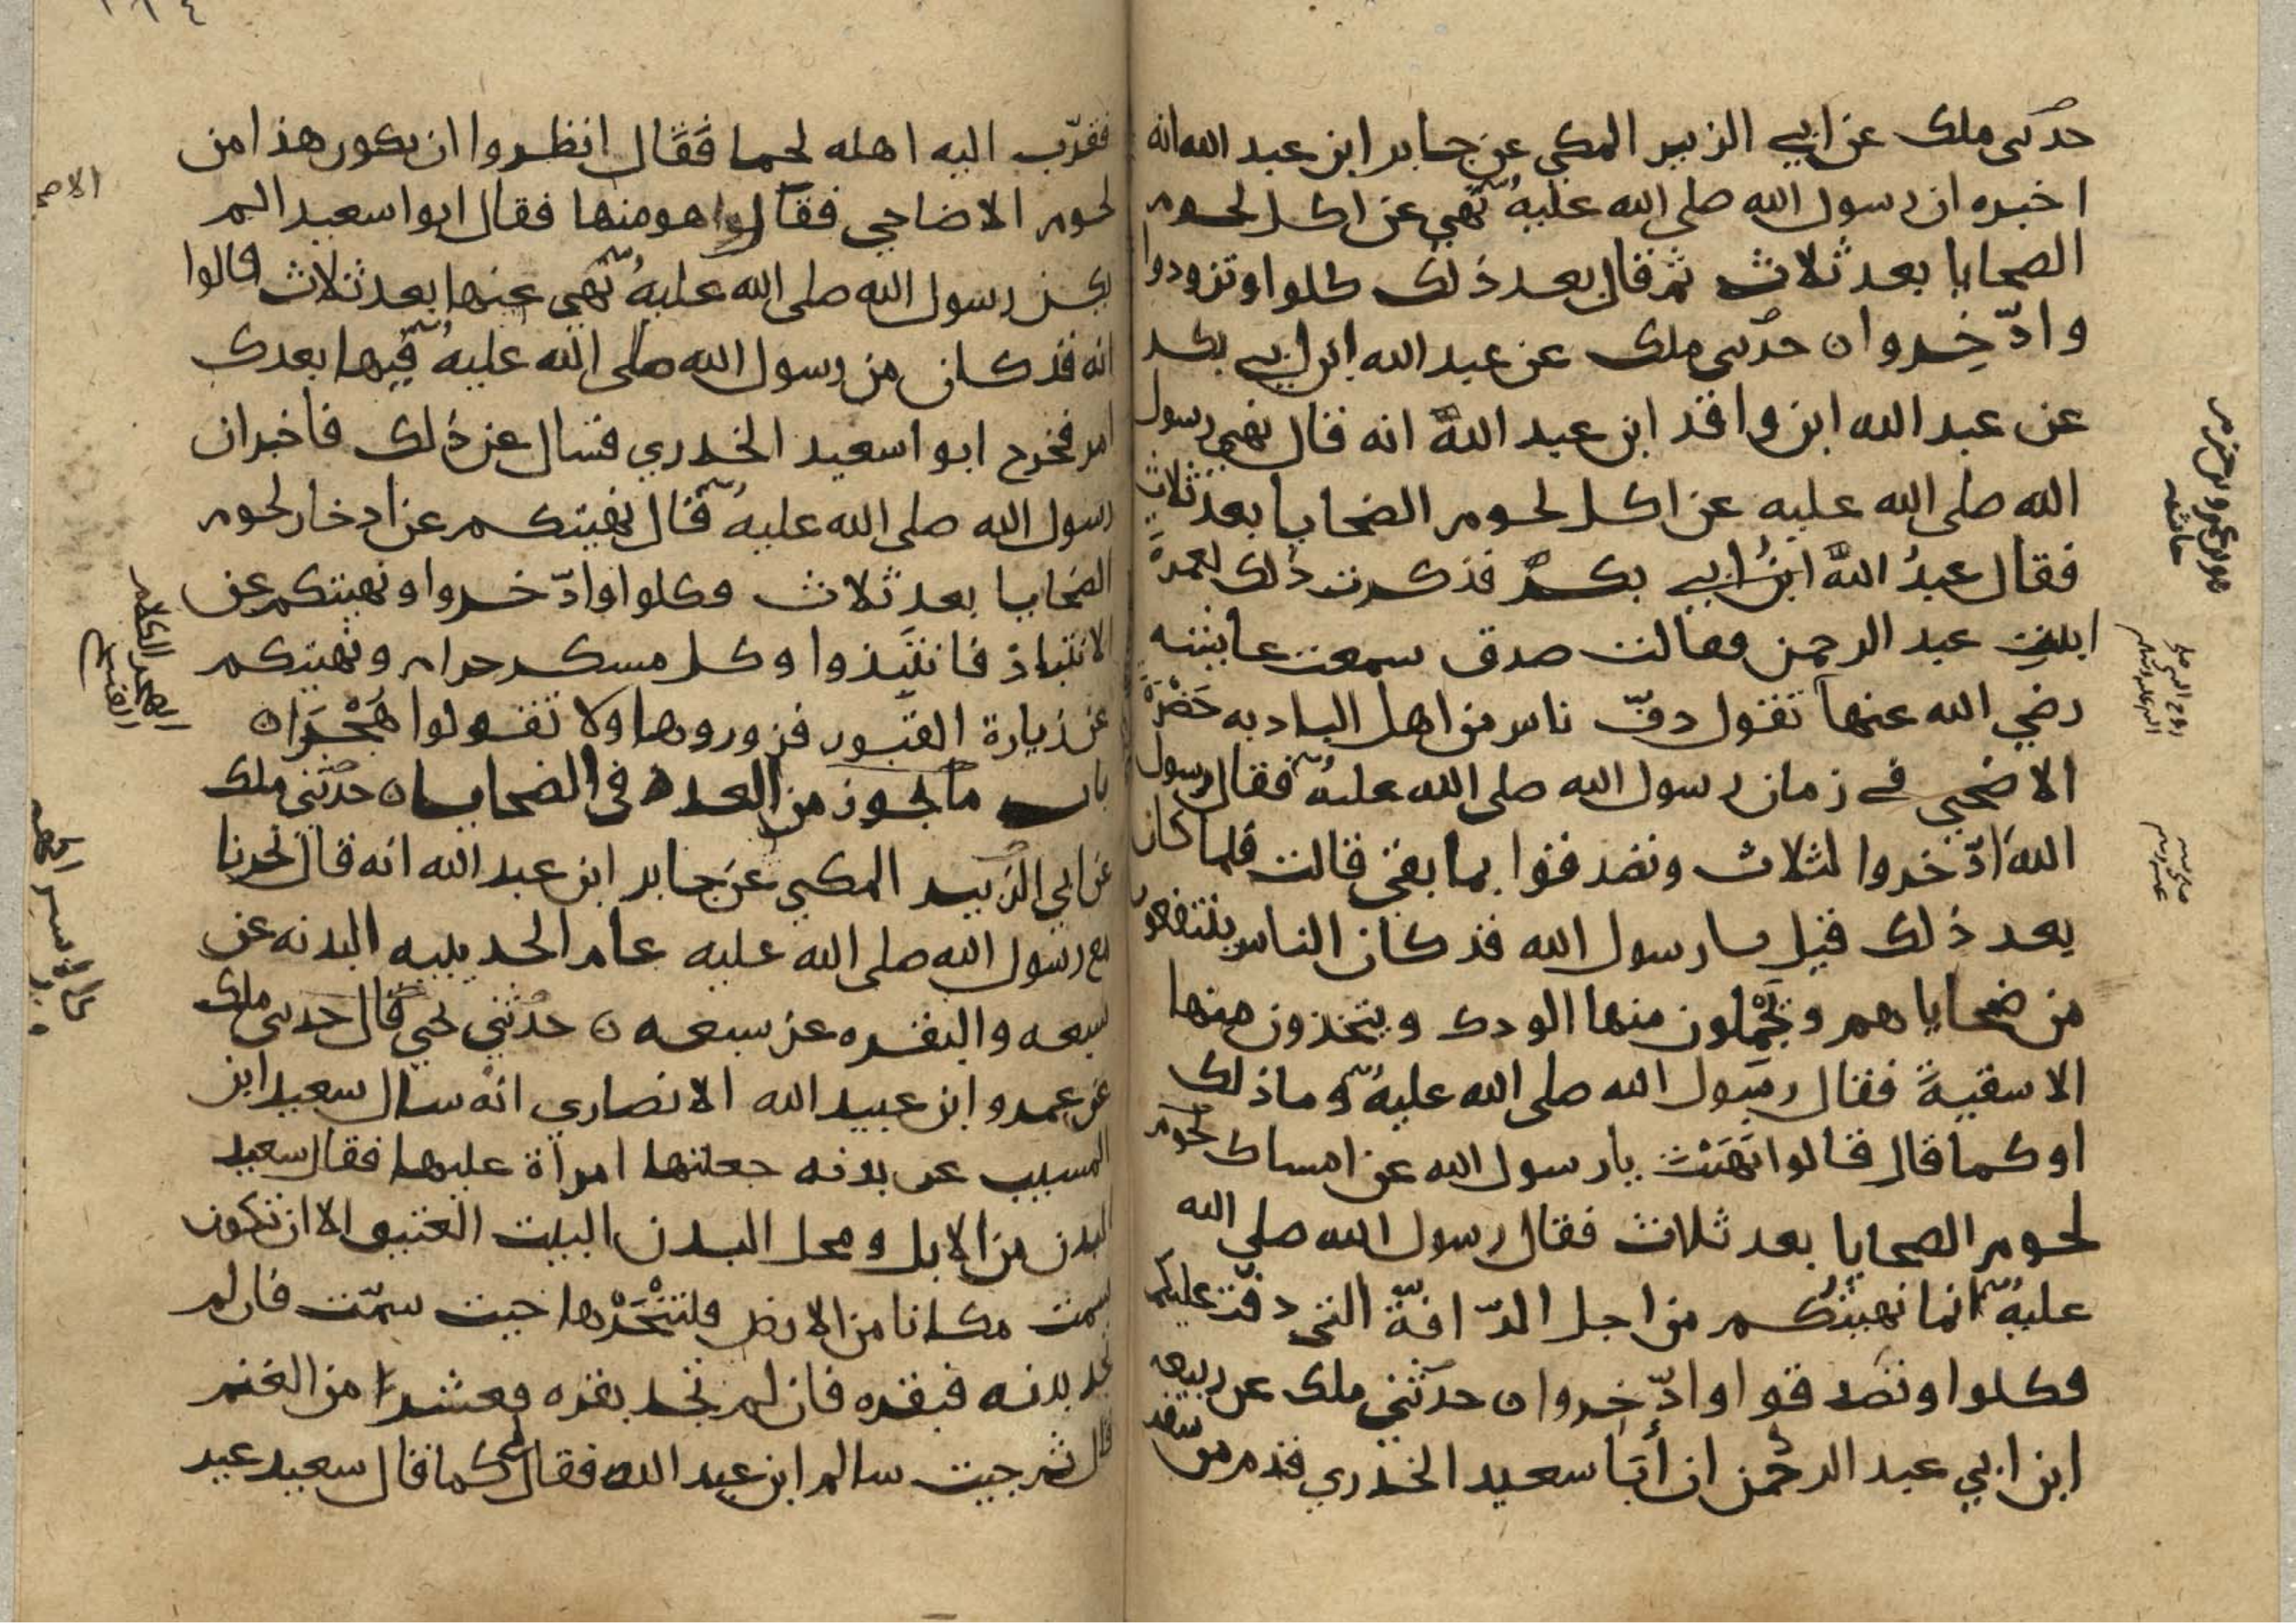 حدثني ملك عن ابي الزبير المكي عن جابر ابن عبد الله انه
اخبره ان رسول الله صلى الله عليه نهى عن اكل لحوم
الضحايا بعد ثلاث ثم قال بعد ذلك كلوا وتزودوا
وادّخِروا ه حدثني ملك عن عبد الله ابن ابي بكر
عن عبد الله ابن واقد ابن عبد اللهِ انه قال نهى رسول
الله صلى الله عليه عن اكل لحوم الضحايا بعد ثلاث
فقال عبدُ اللهِ ابنُ ابي بكرٍ فذكرت ذلك لعمرةَ
ابنتِ عبد الرحمن فقالت صدق سمعت عايشه
رضي الله عنها تقول دفّ ناس من اهل الباديه حَضْرَةَ
الاضحى في زمان رسول الله صلى الله عليه فقال رسول
الله ادّخروا لثلاث وتصدقوا بما بقي قالت فلما كان
بعد ذلك قيل يا رسول الله قد كان الناس ينتفعون
من ضحاياهم ويَجْمُلون منها الودك ويتخذون منها
الاسقيةَ فقال رسول الله صلى الله عليه وما ذلك
او كما قال قالوا نَهَيْتَ يا رسول الله عن امساك لحوم
لحوم الضحايا بعد ثلاث فقال رسول الله صلى الله
عليه انما نهيتُكم من اجل الدّافّة التي دفّت عليكم
فكلوا وتصدقوا وادّخِروا ه حدثني ملك عن ربيعه
ابن ابي عبد الرحمن ان أبَا سعيد الخدري قدم من سفر
فقرّب اليه اهله لحما فَقَال انظروا ان يكون هذا من
لحوم الاضاحي فقالوا هو منها فقال ابوا سعيد الم
يكن رسول الله صلى الله عليه نهى عنها بعد ثلاث قالوا
انه قد كان من رسول الله صلى الله عليه فيها بعدك
امر فخرج ابوا سعيد الخدري فسال عن ذلك فاخبر ان
رسول الله صلى الله عليه قال نهيتكم عن ادخار لحوم
الضحايا بعد ثلاث فكلوا وادّخروا ونهيتكم عن
الانتباذ فانتَبِذوا وكل مسكر حرام ونهيتكم
عن زيارة القبور فزوروها ولا تقولوا هُجْرَا ه
باب ما يجوز من العدد في الضحايا ه حدثني ملك
عن ابي الزبير المكي عن جابر ابن عبد الله انه قال نحرنا
مع رسول الله صلى الله عليه عام الحديبيه البدنه عن
سبعه والبقره عن سبعه ه حدثني يحيى قال حدثني ملك
عن عمرو ابن عبيد الله الانصاري انه سال سعيد ابن
المسيب عن بدنه جعلتها امراة عليها فقال سعيد
البدن من الابل ومحل البدن البيت العتيق الا ان تكون
سمت مكانا من الارض فلتنْحَرْها حيث سمّت فان لم
تجد بدنه فبقره فان لم تجد بقره فعشرا من الغنم
قال ثم جيت سالم ابن عبد الله فقال لي كما قال سعيد غير